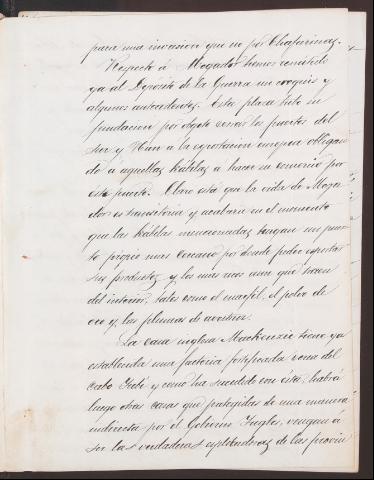 para una invasion que no por Chafarinas.
Respecto á Mogador hemos remitido
ya al Depósito de la Guerra un croquis y
algunos antecedentes. Esta plaza tuvo su
fundacion por objeto cerrar los puertos del
Sur y Nun á la esportacion europea obligan
do á aquellas Kábilas á hacer su comercio por
este puerto. Claro está que la vida de Moga
dor es transitoria y acabará en el momento
que las Kábilas mencionadas tengan un puer
to propio mas cercano por donde poder esportar
sus productos y los mas ricos aun que traen
del interior, tales como el marfil, el polvo de
oro y las plumas de avestruz.
La casa inglesa Mackenzie tiene ya
establecida una factoria fortificada cerca del
Cabo Jubi y como ha sucedido con ésta, habrá
luego otras casas que protegidas de una manera
indirecta por el Gobierno Ingles, vengan á
ser las verdaderas esplotadoras de las provin